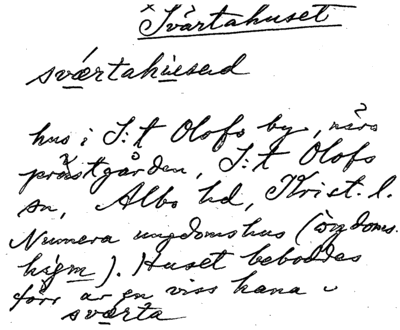 × Svärtahuset
sværtahused
hus i S:t Olofs by, nära
prästgården, S:t Olofs
sn, Albo hd, Krist. l.
Numera ungdomshus (
). Huset beboddes
förr av en viss
sværta